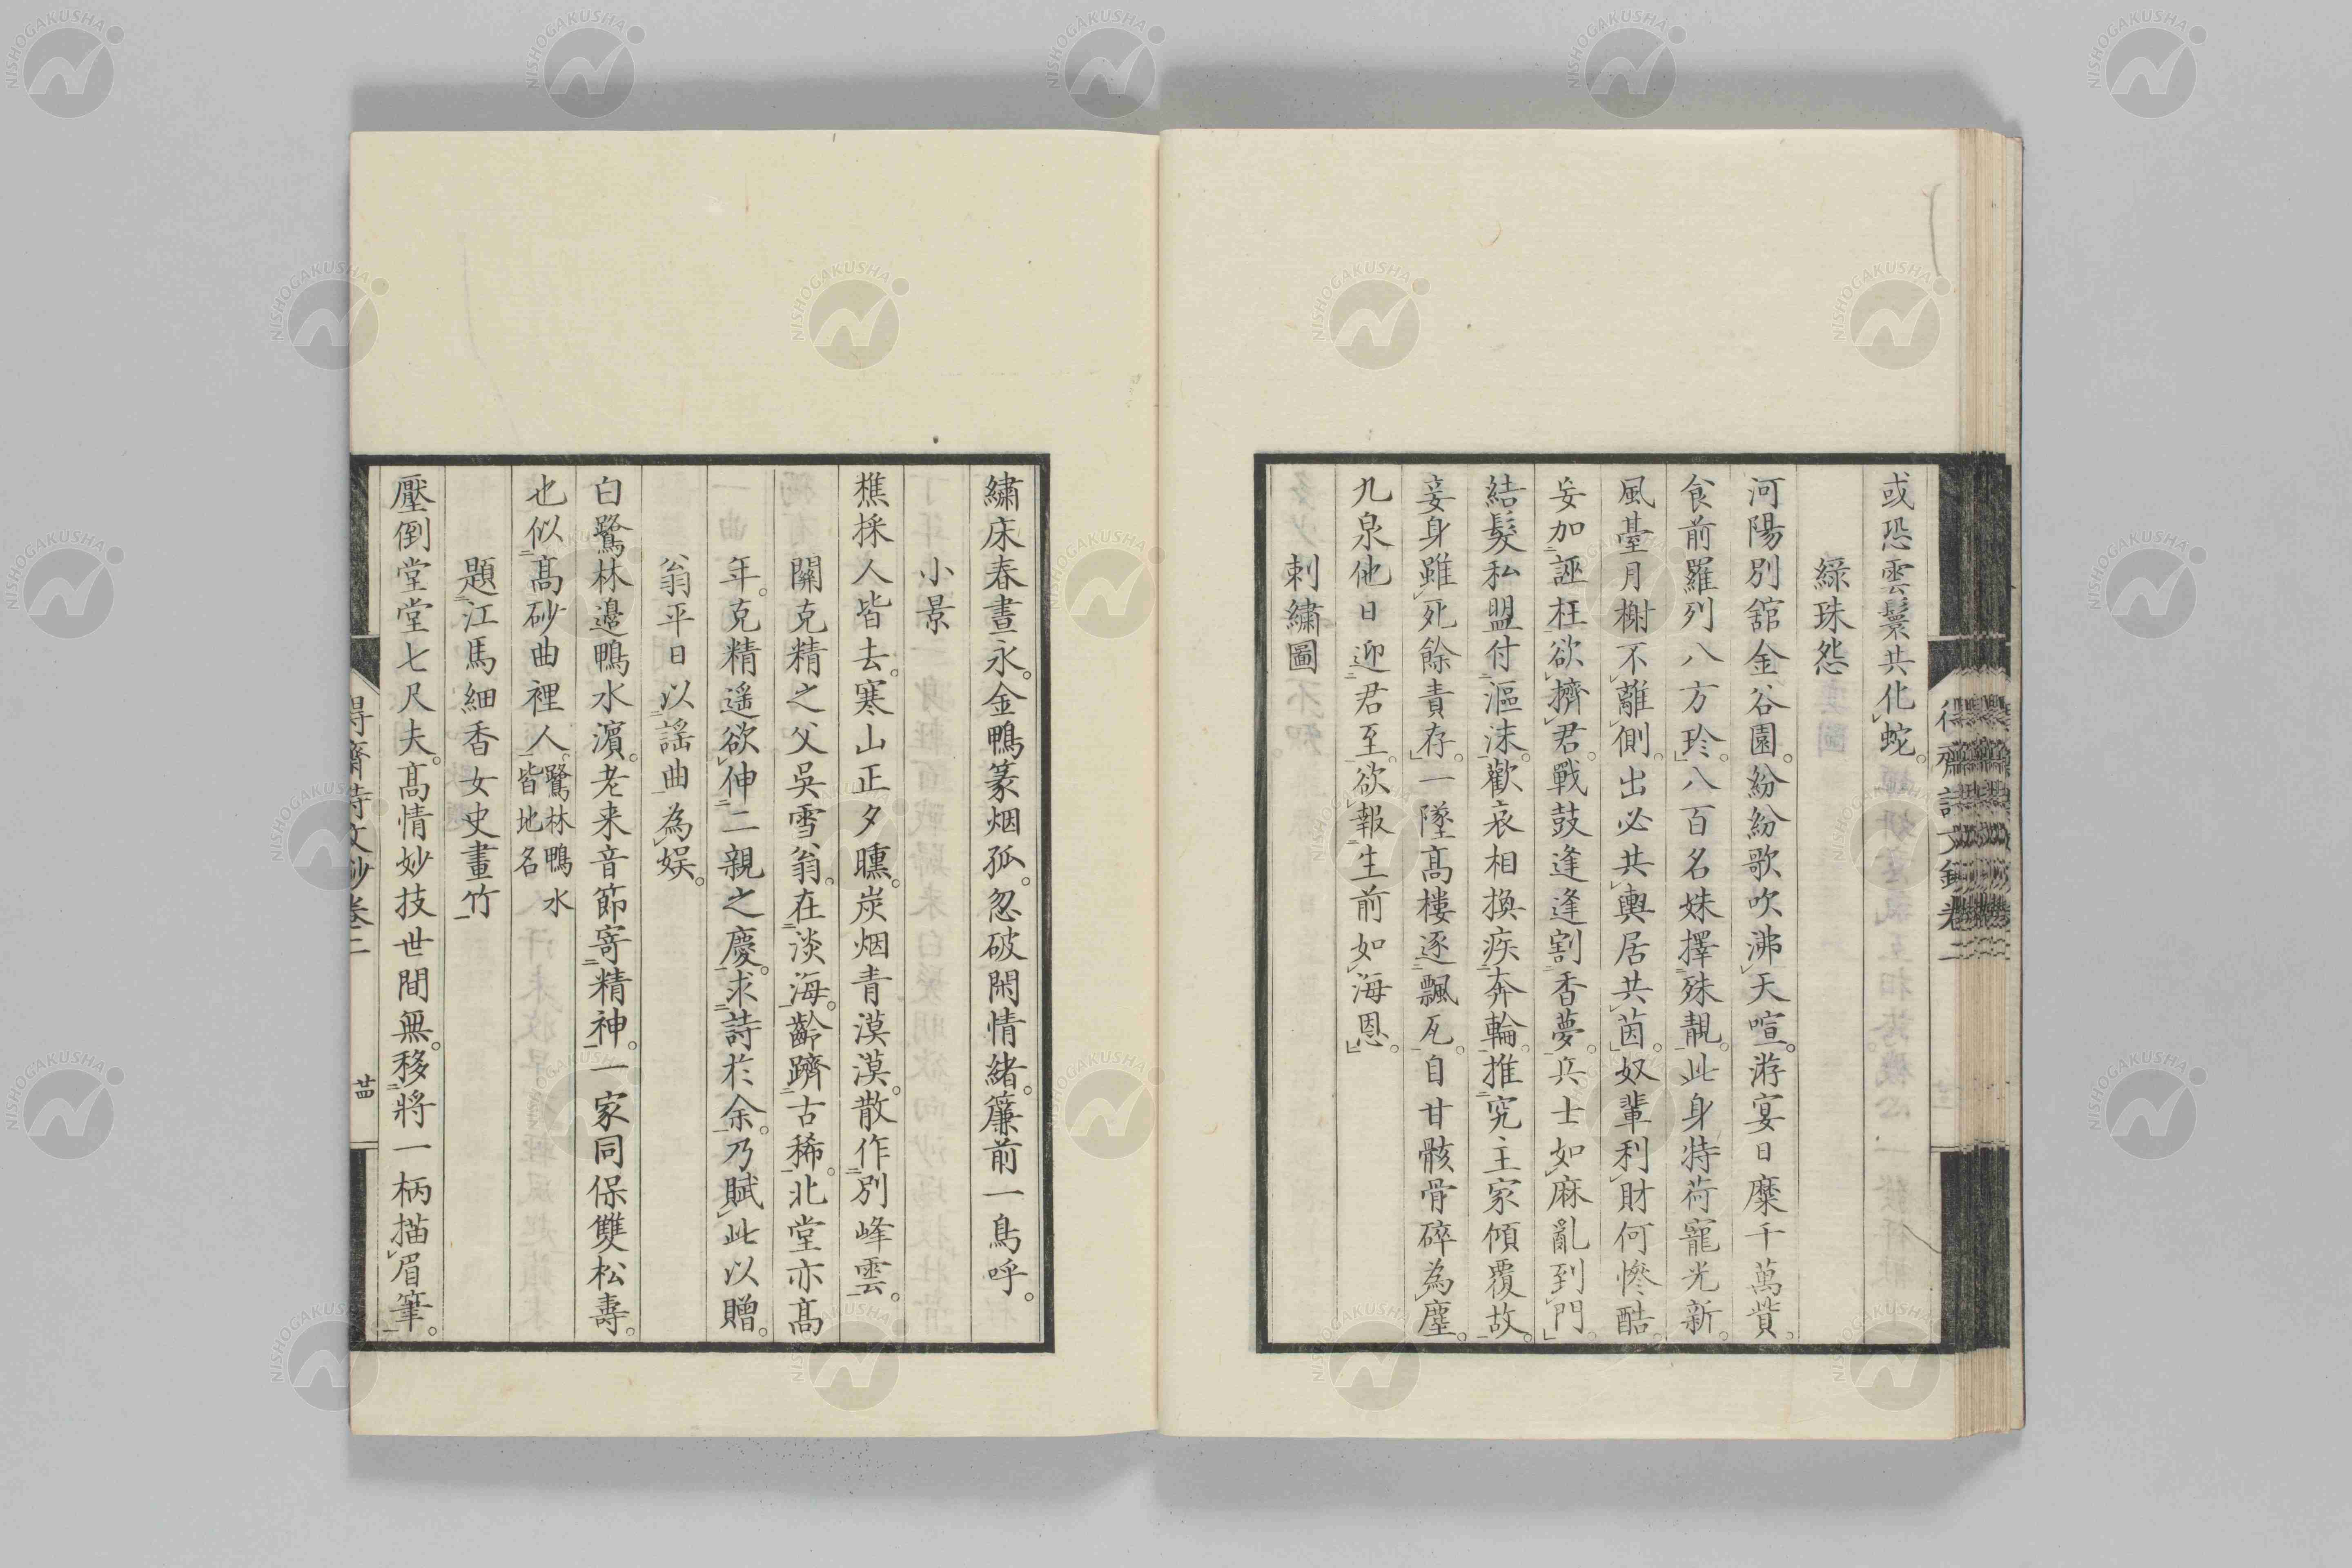 或恐雲鬟共化蛇。
綠珠怨
河陽別舘金谷園。紛紛歌吹沸天喧。游宴日糜千萬貲。
食前羅列八方珍。八百名姝擇殊靚。此身特荷寵光新。
風臺月榭不離側。出必共輿居共茵。奴輩利財何慘酷。
妄加誣枉欲擠君。戰鼓逢逢割香夢。兵士如麻亂到門。
結髮私盟付漚沫。歡哀相換疾奔輪。推究主家傾覆故。
妾身雖死餘責存。一墜髙樓逐飄瓦。自甘骸骨碎為塵。
九泉他日迎君至。欲報生前如海恩。
刺繡圖
繡床春晝永。金鴨篆烟孤。忽破閑情緒。簾前一鳥呼。
小景
樵採人皆去。寒山正夕曛。炭烟青漠漠。散作別峰雲。
關克精之父吳雪翁。在淡海。齡躋古稀。北堂亦髙
年。克精遥欲伸二親之慶。求詩於余。乃賦此以贈。
翁平日以謡曲為娯。
白鷺林邉鴨水濵。老来音節寄精神。一家同保雙松壽。
也似髙砂曲裡人。鷺林鴨水皆地名
題江馬細香女史畫竹
壓倒堂堂七尺夫。髙情妙技世間無。移將一柄描眉筆。
得齋詩文鈔卷二
廿四
NISHOGAKUSHA